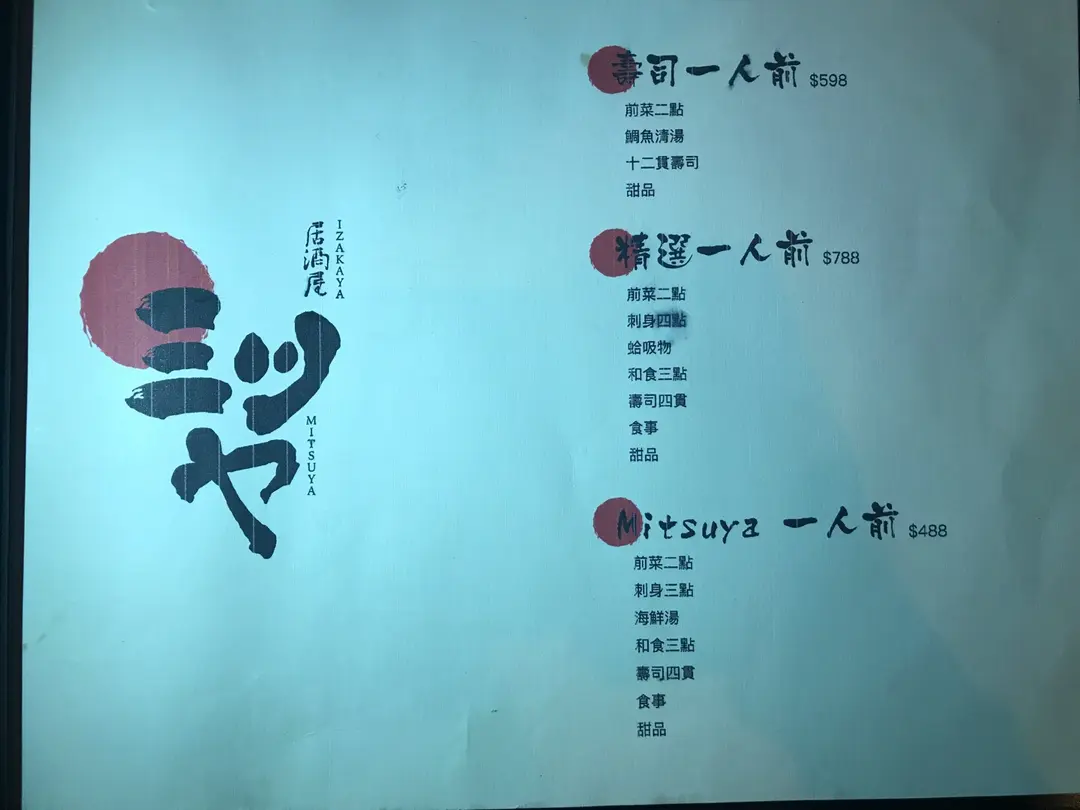 居酒屋
IZAKAYA
三ツヤ
MITSUYA
壽司一人前 $598
前菜二點
鯛魚清湯
十二貫壽司
甜品
精選一人前 $788
前菜二點
刺身四點
蛤吸物
和食三點
壽司四貫
食事
甜品
Mitsuya 一人前 $488
前菜二點
刺身三點
海鮮湯
和食三點
壽司四貫
食事
甜品